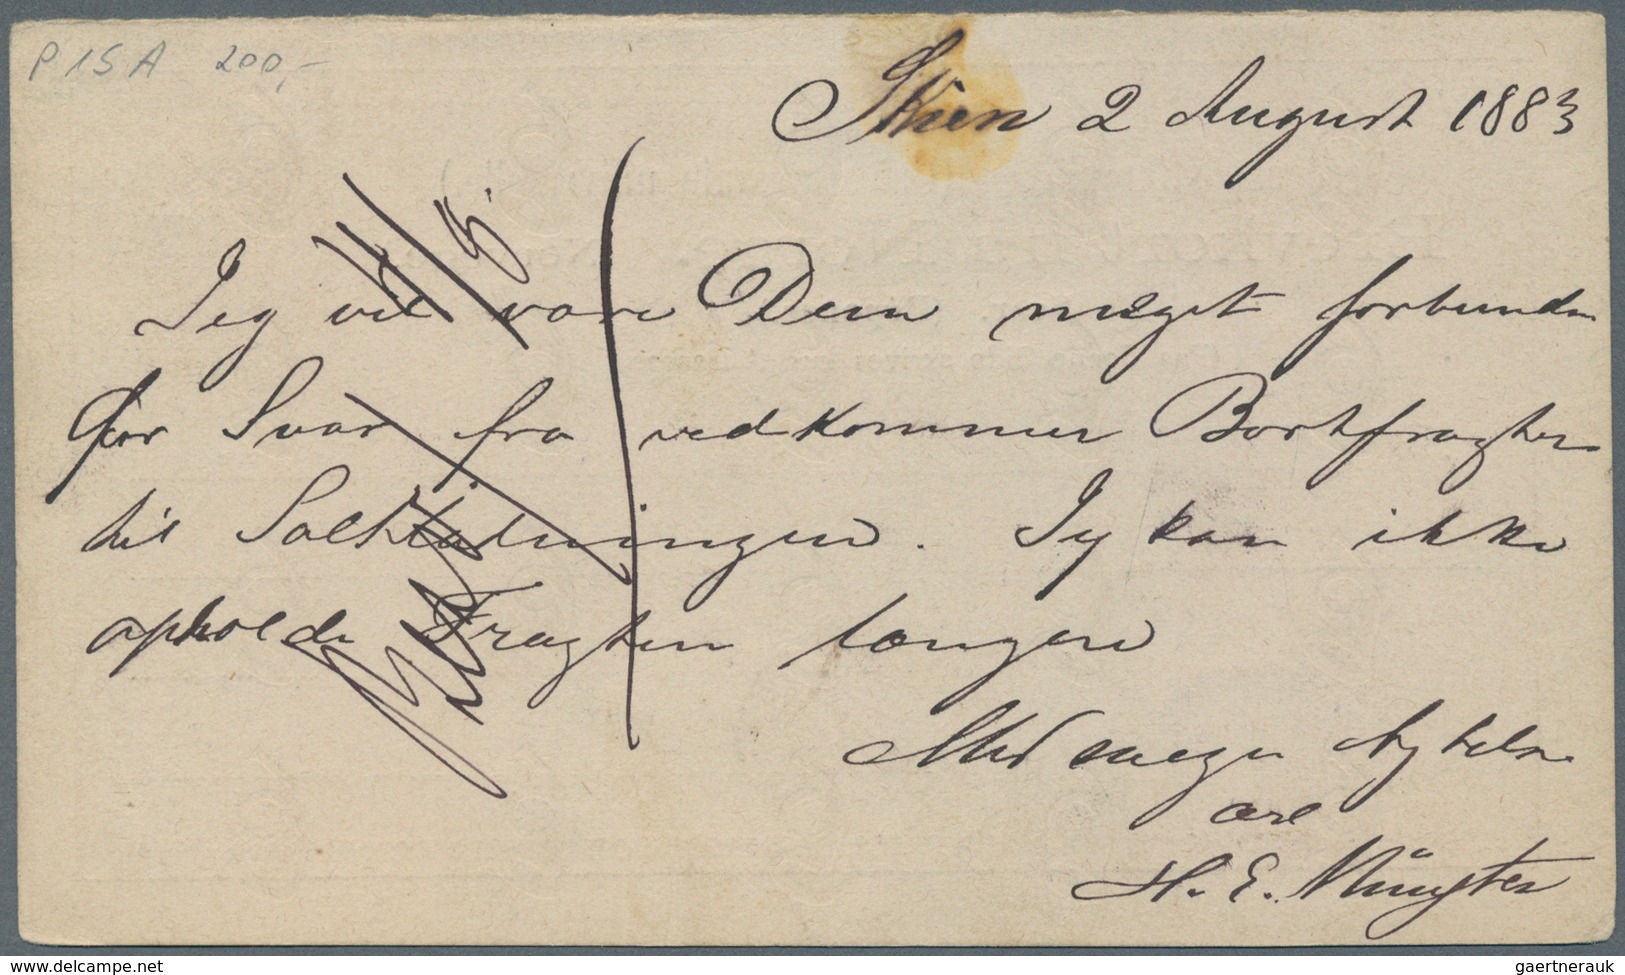 P 15 A 200,-
Skien 2 August 1883
Jeg vil være Dem meget forbunden
for Svar fra vedkommer Bortfragter
til Saltladningen. Jeg kan ikke
opholde Fragten længere
Med megen Agtelse
H. E. Münster
www.delcampe.net
gaertnerauk